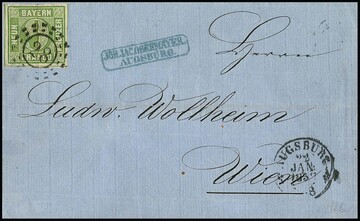 BAYERN
JOH. JAC. OBERMAYER.
AUGSBURG.
Herrn
Ludw. Wollheim
Wien
AUGSBURG
JAN.